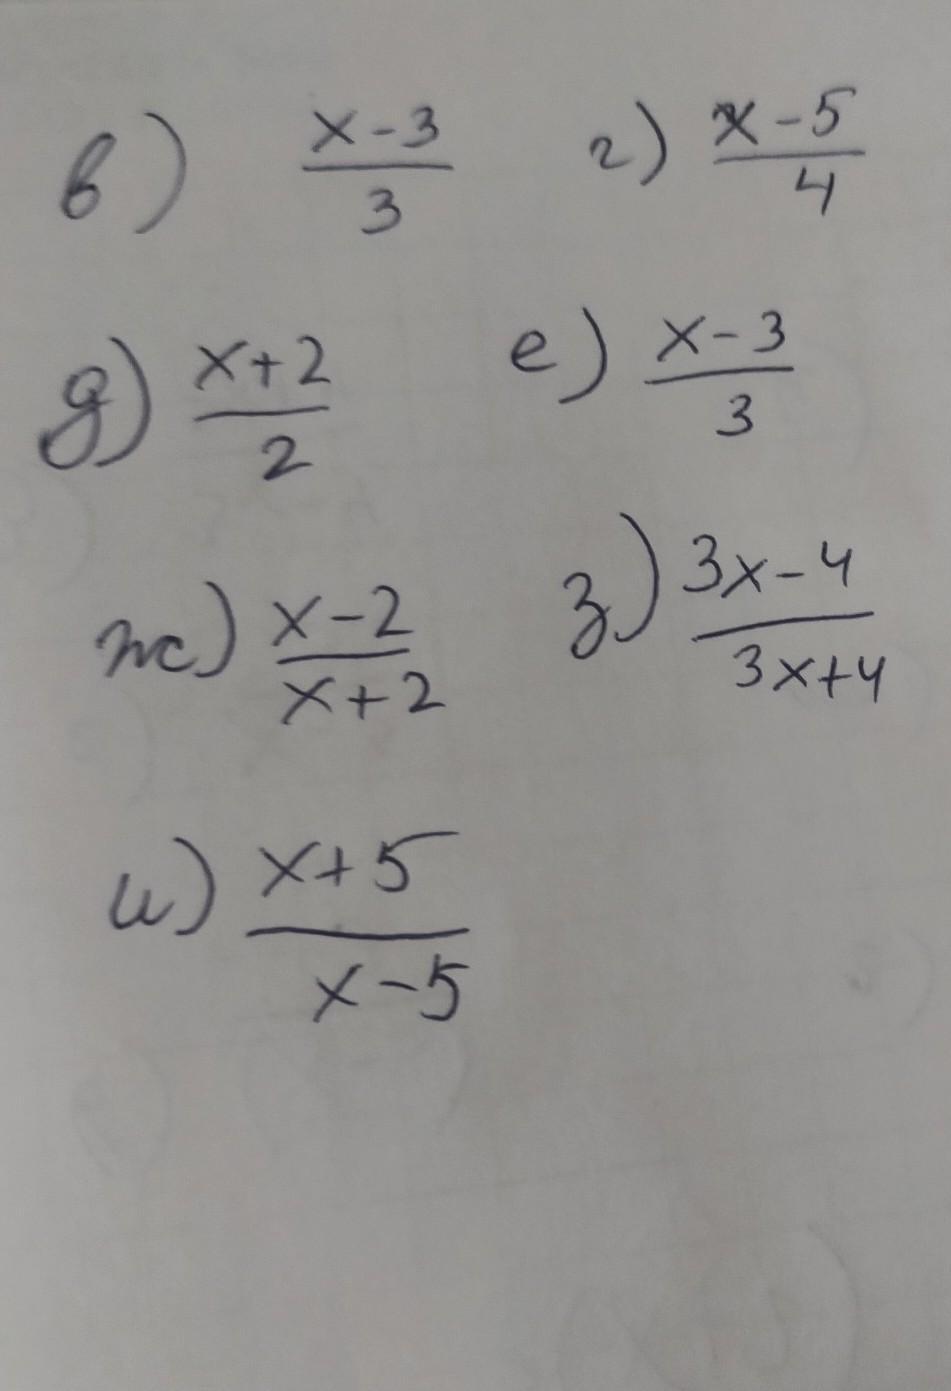 в) x-3/3 г) x-5/4
д) x+2/2 е) x-3/3
ж) x-2/x+2 з) 3x-4/3x+4
и) x+5/x-5